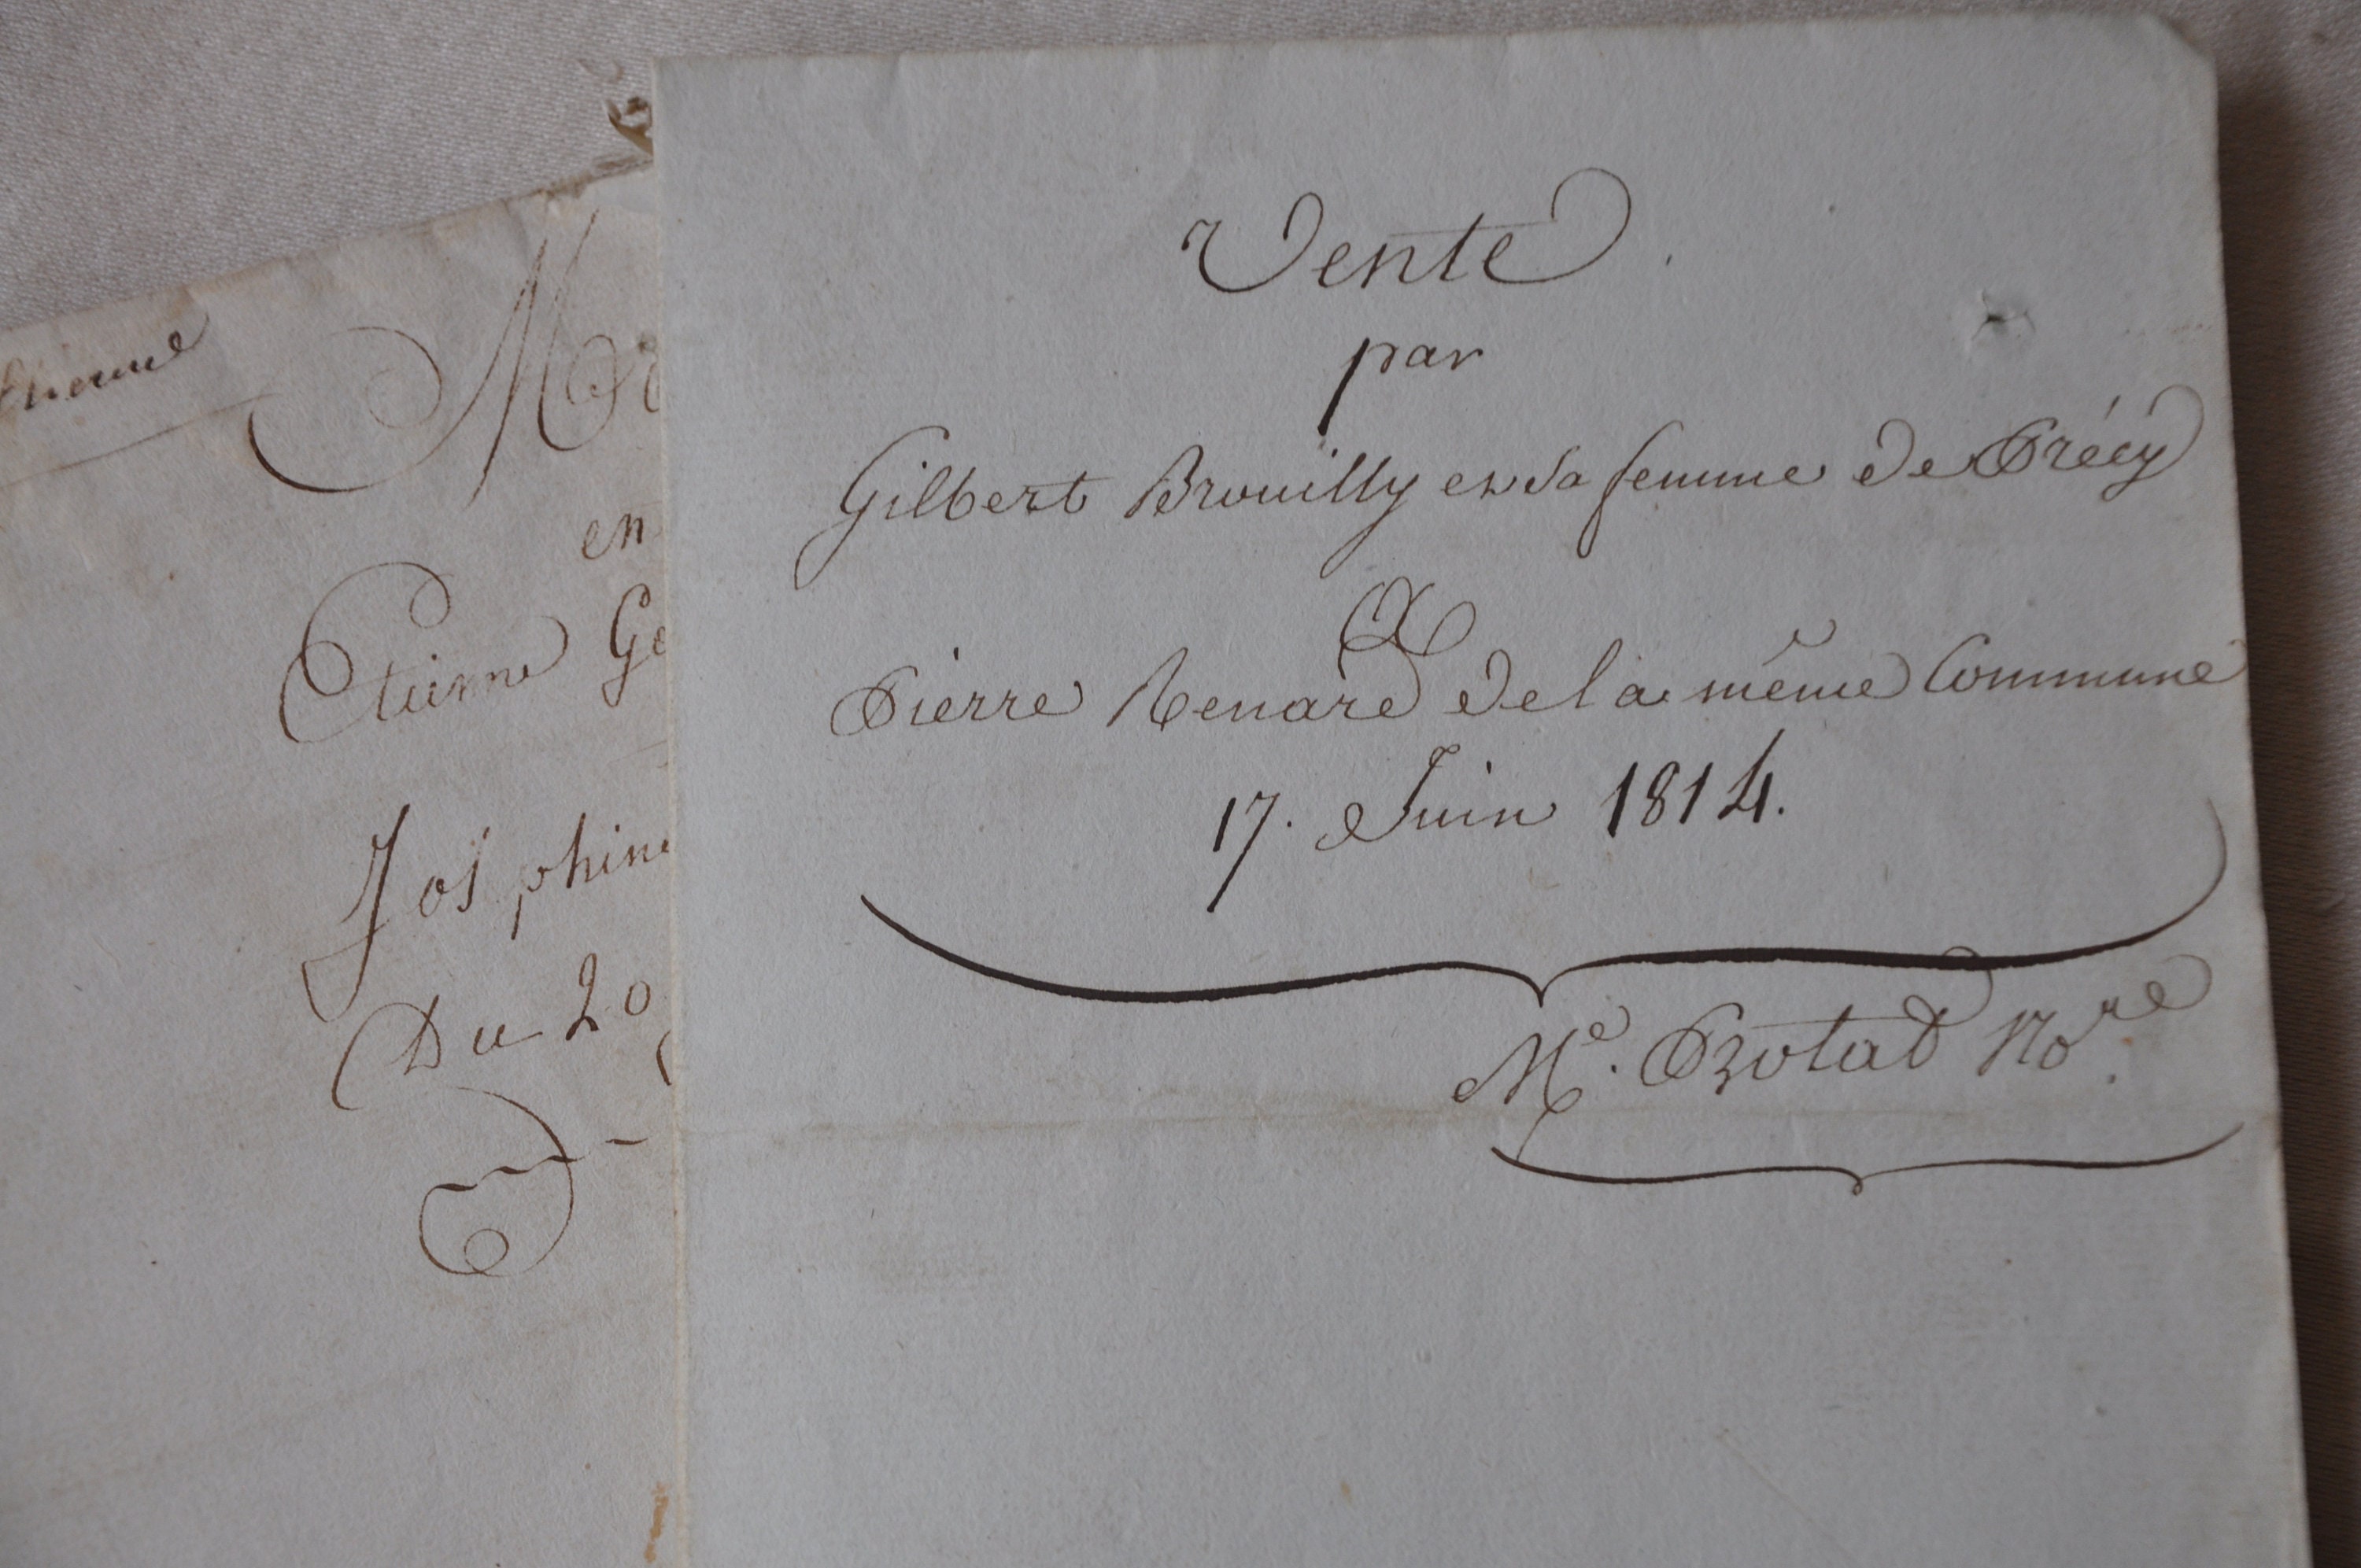 Vente
par
Gilbert Brouilly et sa femme de Précy
A
Pierre Renard de la même Commune
17. Juin 1814.
Me. Protat Nore.
en
Etienne Ge
Jos phine
Du 20